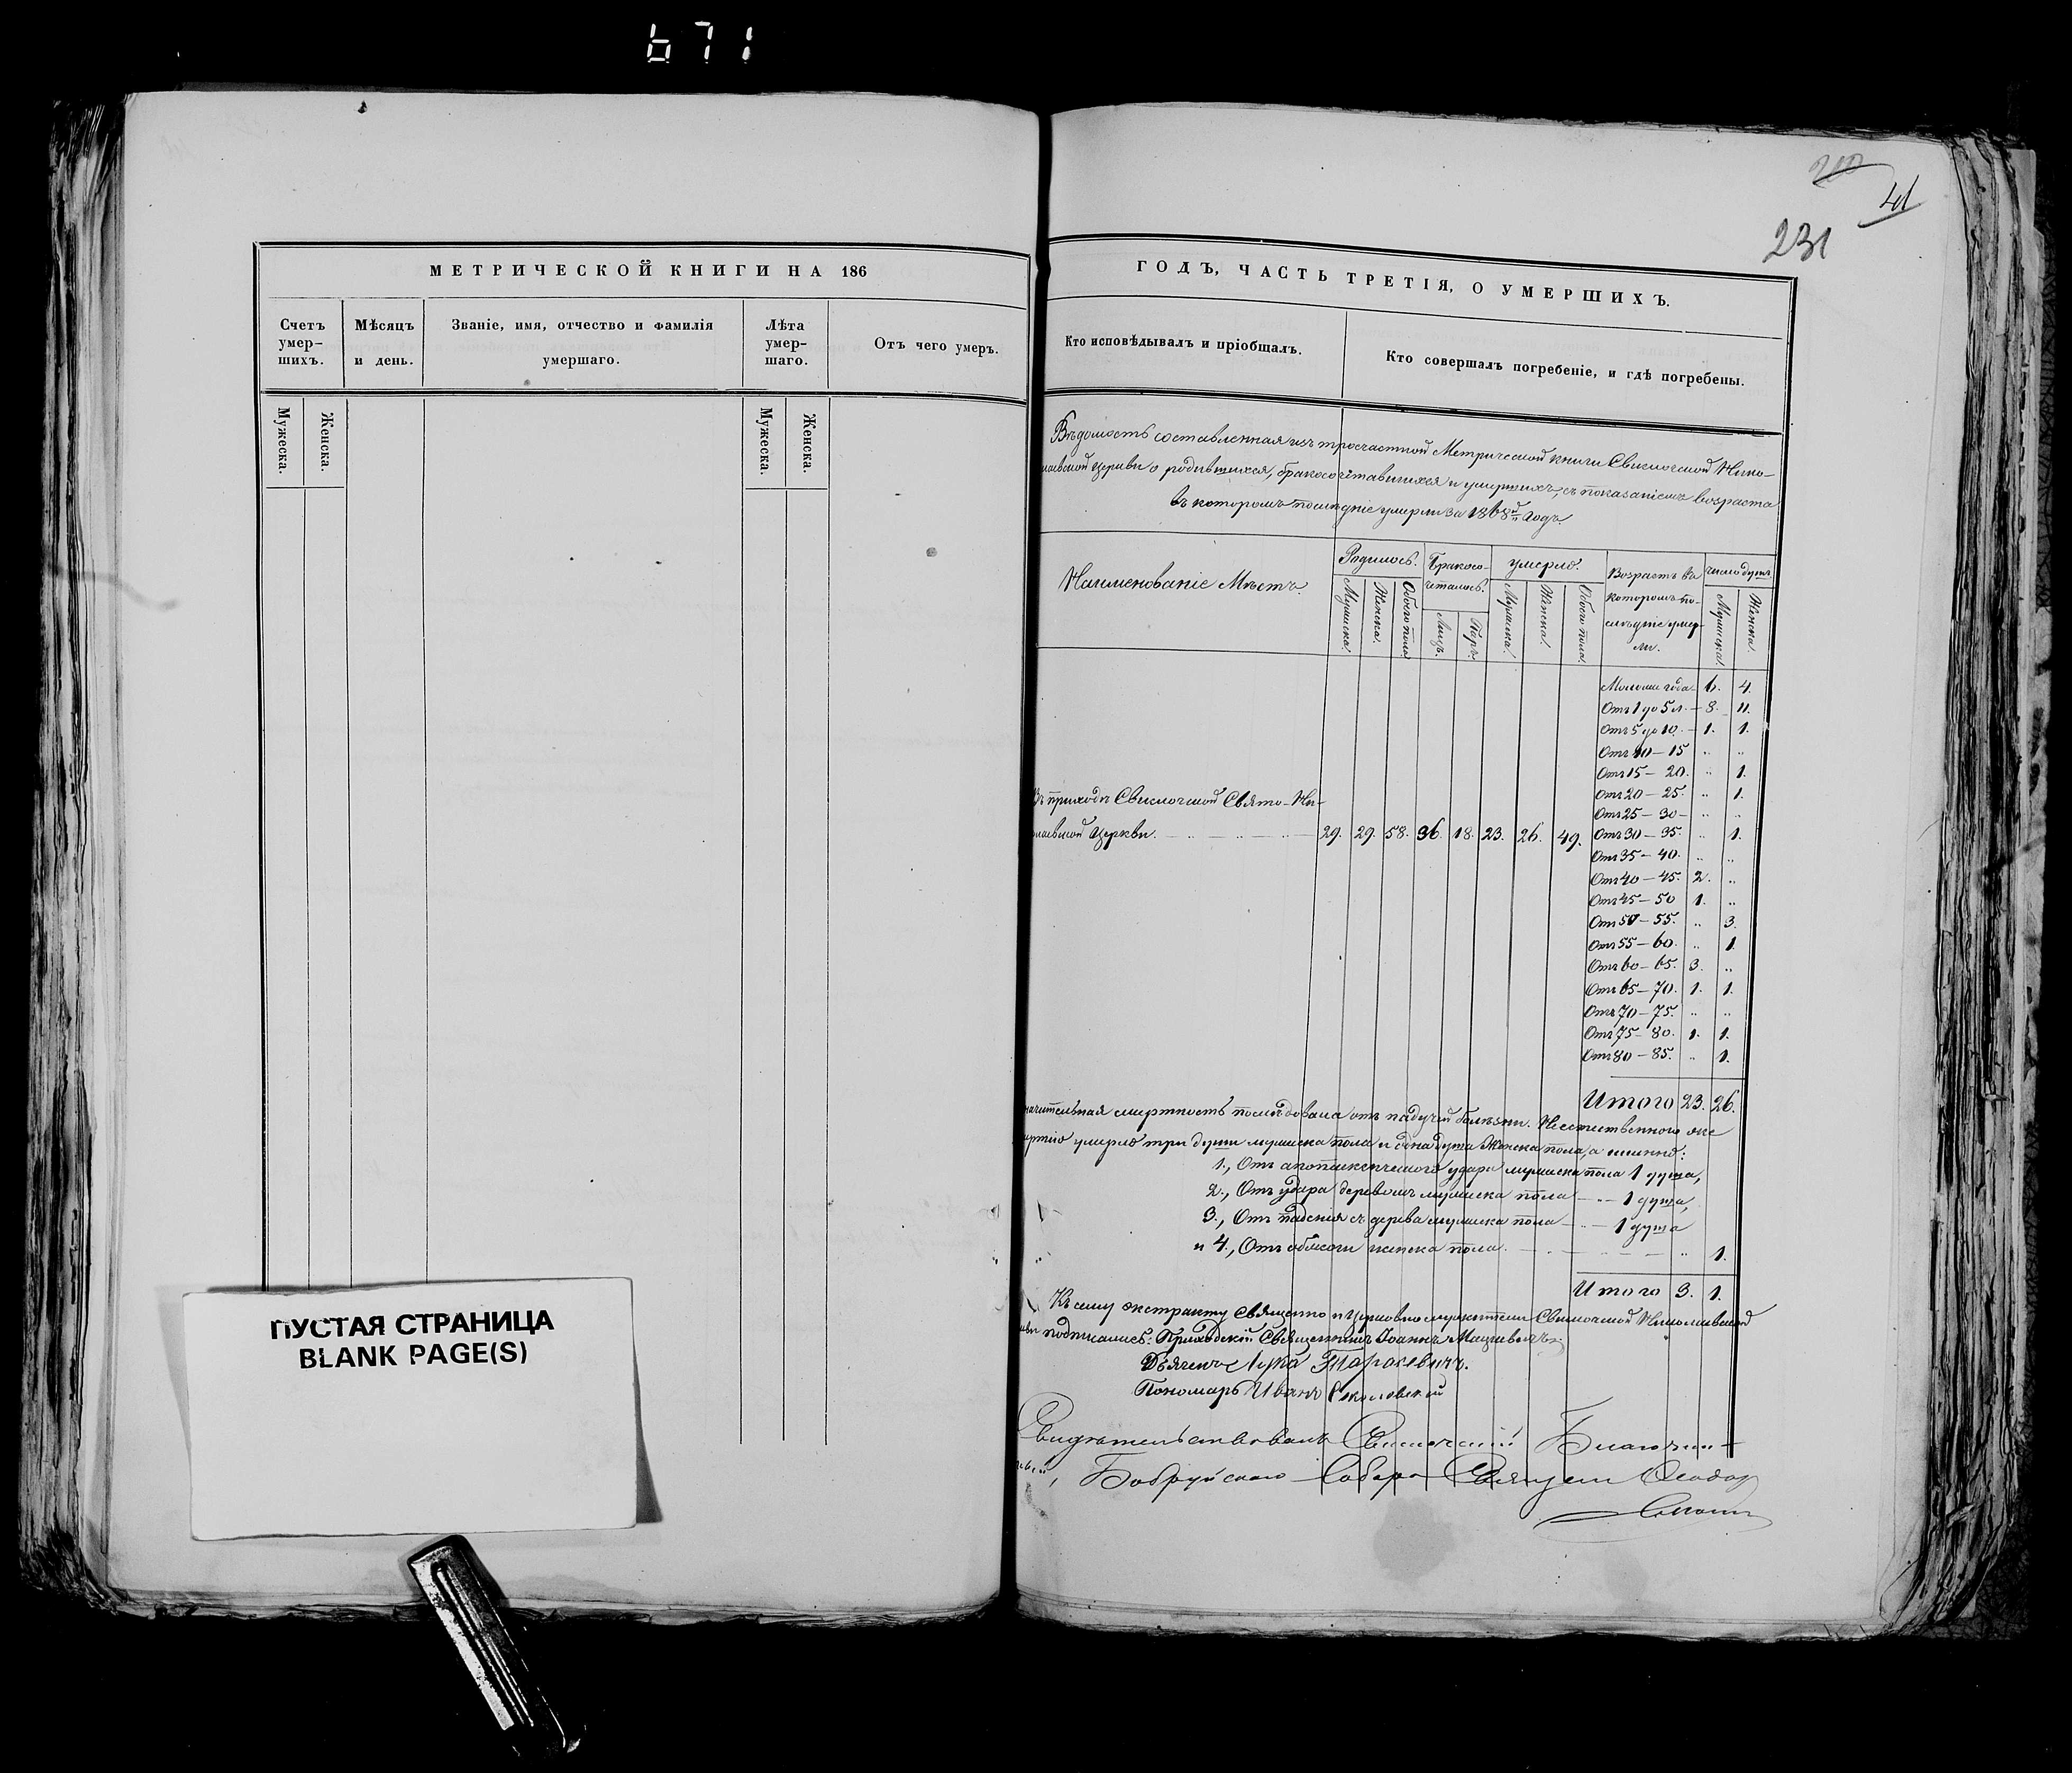 671
210
41
231
МЕТРИЧЕСКОЙ КНИГИ НА 186
Счетъ умер-шихъ.
Мѣсяцъ и день.
Званіе, имя, отчество и фамилія умершаго.
Лѣта умер-шаго.
Отъ чего умеръ.
Мужеска.
Женска.
Мужеска.
Женска.
ПУСТАЯ СТРАНИЦА
BLANK PAGE(S)
ГОДЪ, ЧАСТЬ ТРЕТІЯ, О УМЕРШИХЪ.
Кто исповѣдывалъ и пріобщалъ.
Кто совершалъ погребеніе, и гдѣ погребены.
Вѣдомость составленная изъ тросчастной Метрической книги Свислочской Нико-
лаевской церкви о родившихся, бракосочетавшихся и умершихъ, съ показаніемъ возраста
въ которомъ послѣдніе умерли за 1868й годъ.
Наименованіе Мѣстъ.
Родилось.
Бракосо-четалось.
умерло.
Возрастъ въ которомъ по-слѣдніе умер-ли.
число душъ
Мужеска.
Женска.
Обоего пола
Лицъ.
Паръ.
Мужеска.
Женска.
Обоего пола.
Мужеска.
Женска.
Моложе года 6. 4.
Отъ 1 до 5 л. — 8. 11.
Отъ 5 до 10. — 1. 1.
Отъ 10 — 15 „ „
Отъ 15 — 20. „ 1.
Отъ 20 — 25. „ 1.
Отъ 25 — 30 — „ „
Въ приходѣ Свислочской Свято-Ни-
колаевской Церкви. 29. 29. 58. 36. 18. 23. 26. 49.
Отъ 30 — 35. „ 1.
Отъ 35 — 40. „ „
Отъ 40 — 45. 2. „
Отъ 45 — 50 1. „
Отъ 50 — 55. „ 3.
Отъ 55 — 60. „ 1.
Отъ 60 — 65. 3. „
Отъ 65 — 70. 1. 1.
Отъ 70 — 75. „ „
Отъ 75 — 80. 1. 1.
Отъ 80 — 85. „ 1.
Итого 23. 26.
начительная смертность послѣдовала отъ падучей болѣзни. Неестественною же
смертію умерло три души мужеска пола и одна душа Женска пола, а именно:
1., Отъ апоплексическаго удара мужеска пола 1 душа,
2., Отъ удара деревомъ мужеска пола — „ — 1 душа,
3., Отъ паденія съ дерева мужеска пола — „ — 1 душа
и 4., Отъ женска пола. 1.
Итого 3. 1.
Къ сему экстракту священно и церковнослужители Свислочской Николаевской
подписались: Приходскій Священникъ Іоаннъ Мацкевичъ.
Дьячекъ Лука Тарасевичъ.
Пономарь Иванъ Соколовскій
Свидѣтельствовалъ Свислочскій Благочин-
Бобруйскаго Собора Священ